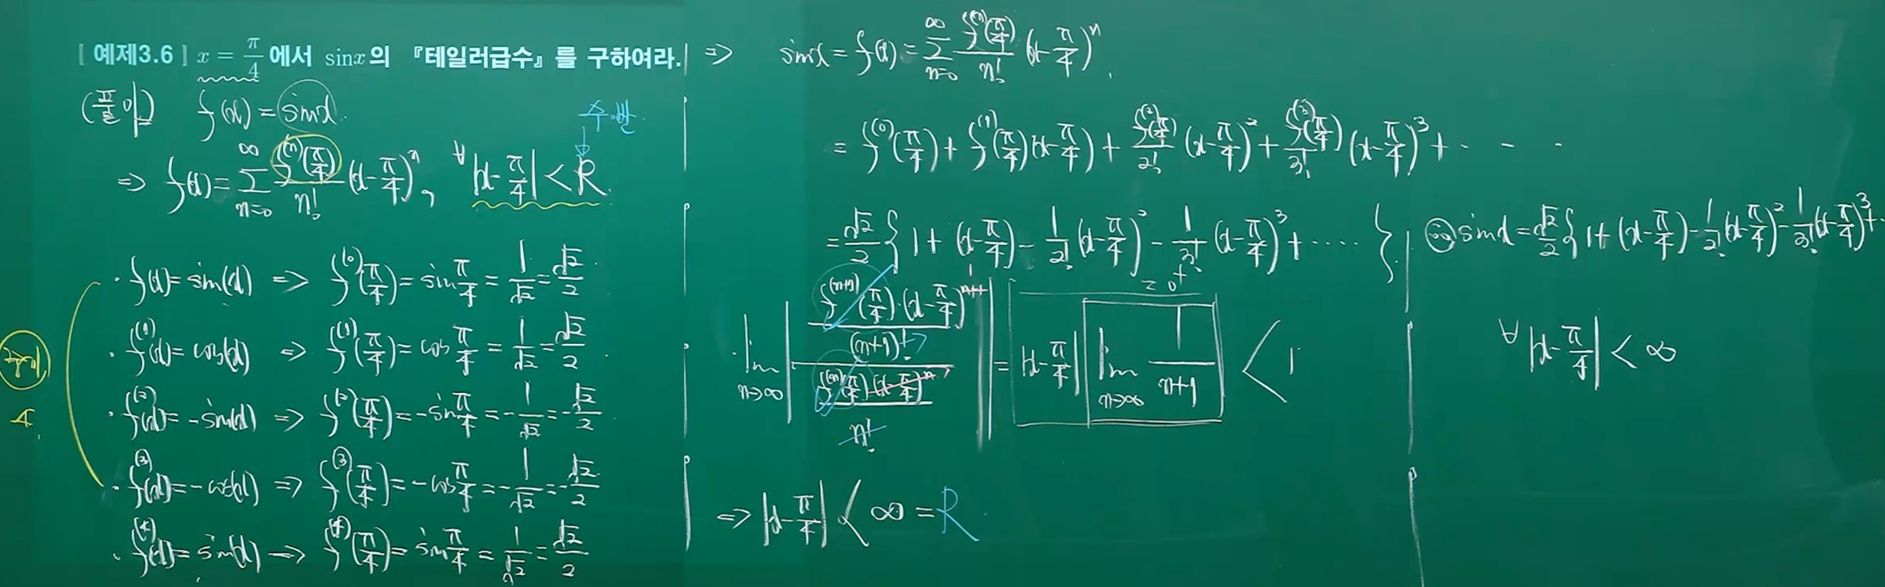 [ 예제3.6 ] x = π/4 에서 sinx의 『테일러급수』를 구하여라.
(풀이) f(x) = sinx
수반
⇒ f(x) = ∑_{n=0}^{∞} f^{(n)}(π/4)/n! (x-π/4)^n, ∀|x-π/4| < R.
· f(x) = sin(x) ⇒ f^{(0)}(π/4) = sin π/4 = 1/√2 = √2/2
· f^{(1)}(x) = cos(x) ⇒ f^{(1)}(π/4) = cos π/4 = 1/√2 = √2/2
· f^{(2)}(x) = -sin(x) ⇒ f^{(2)}(π/4) = -sin π/4 = -1/√2 = -√2/2
· f^{(3)}(x) = -cos(x) ⇒ f^{(3)}(π/4) = -cos π/4 = -1/√2 = -√2/2
· f^{(4)}(x) = sin(x) ⇒ f^{(4)}(π/4) = sin π/4 = 1/√2 = √2/2
주기
4.
⇒ sinx = f(x) = ∑_{n=0}^{∞} f^{(n)}(π/4)/n! (x-π/4)^n.
= f^{(0)}(π/4) + f^{(1)}(π/4)(x-π/4) + f^{(2)}(π/4)/2! (x-π/4)^2 + f^{(3)}(π/4)/3! (x-π/4)^3 + · · ·
= √2/2 { 1 + (x-π/4) - 1/2! (x-π/4)^2 - 1/3! (x-π/4)^3 + ···· }
· lim_{n→∞} | f^{(n+1)}(π/4)·(x-π/4)^{n+1}/(n+1)! / f^{(n)}(π/4)(x-π/4)^n/n! | = |x-π/4| lim_{n→∞} 1/(n+1) < 1
= 0^+
⇒ |x-π/4| < ∞ = R
∴ sinx = √2/2 { 1 + (x-π/4) - 1/2! (x-π/4)^2 - 1/3! (x-π/4)^3 + ··
∀|x-π/4| < ∞